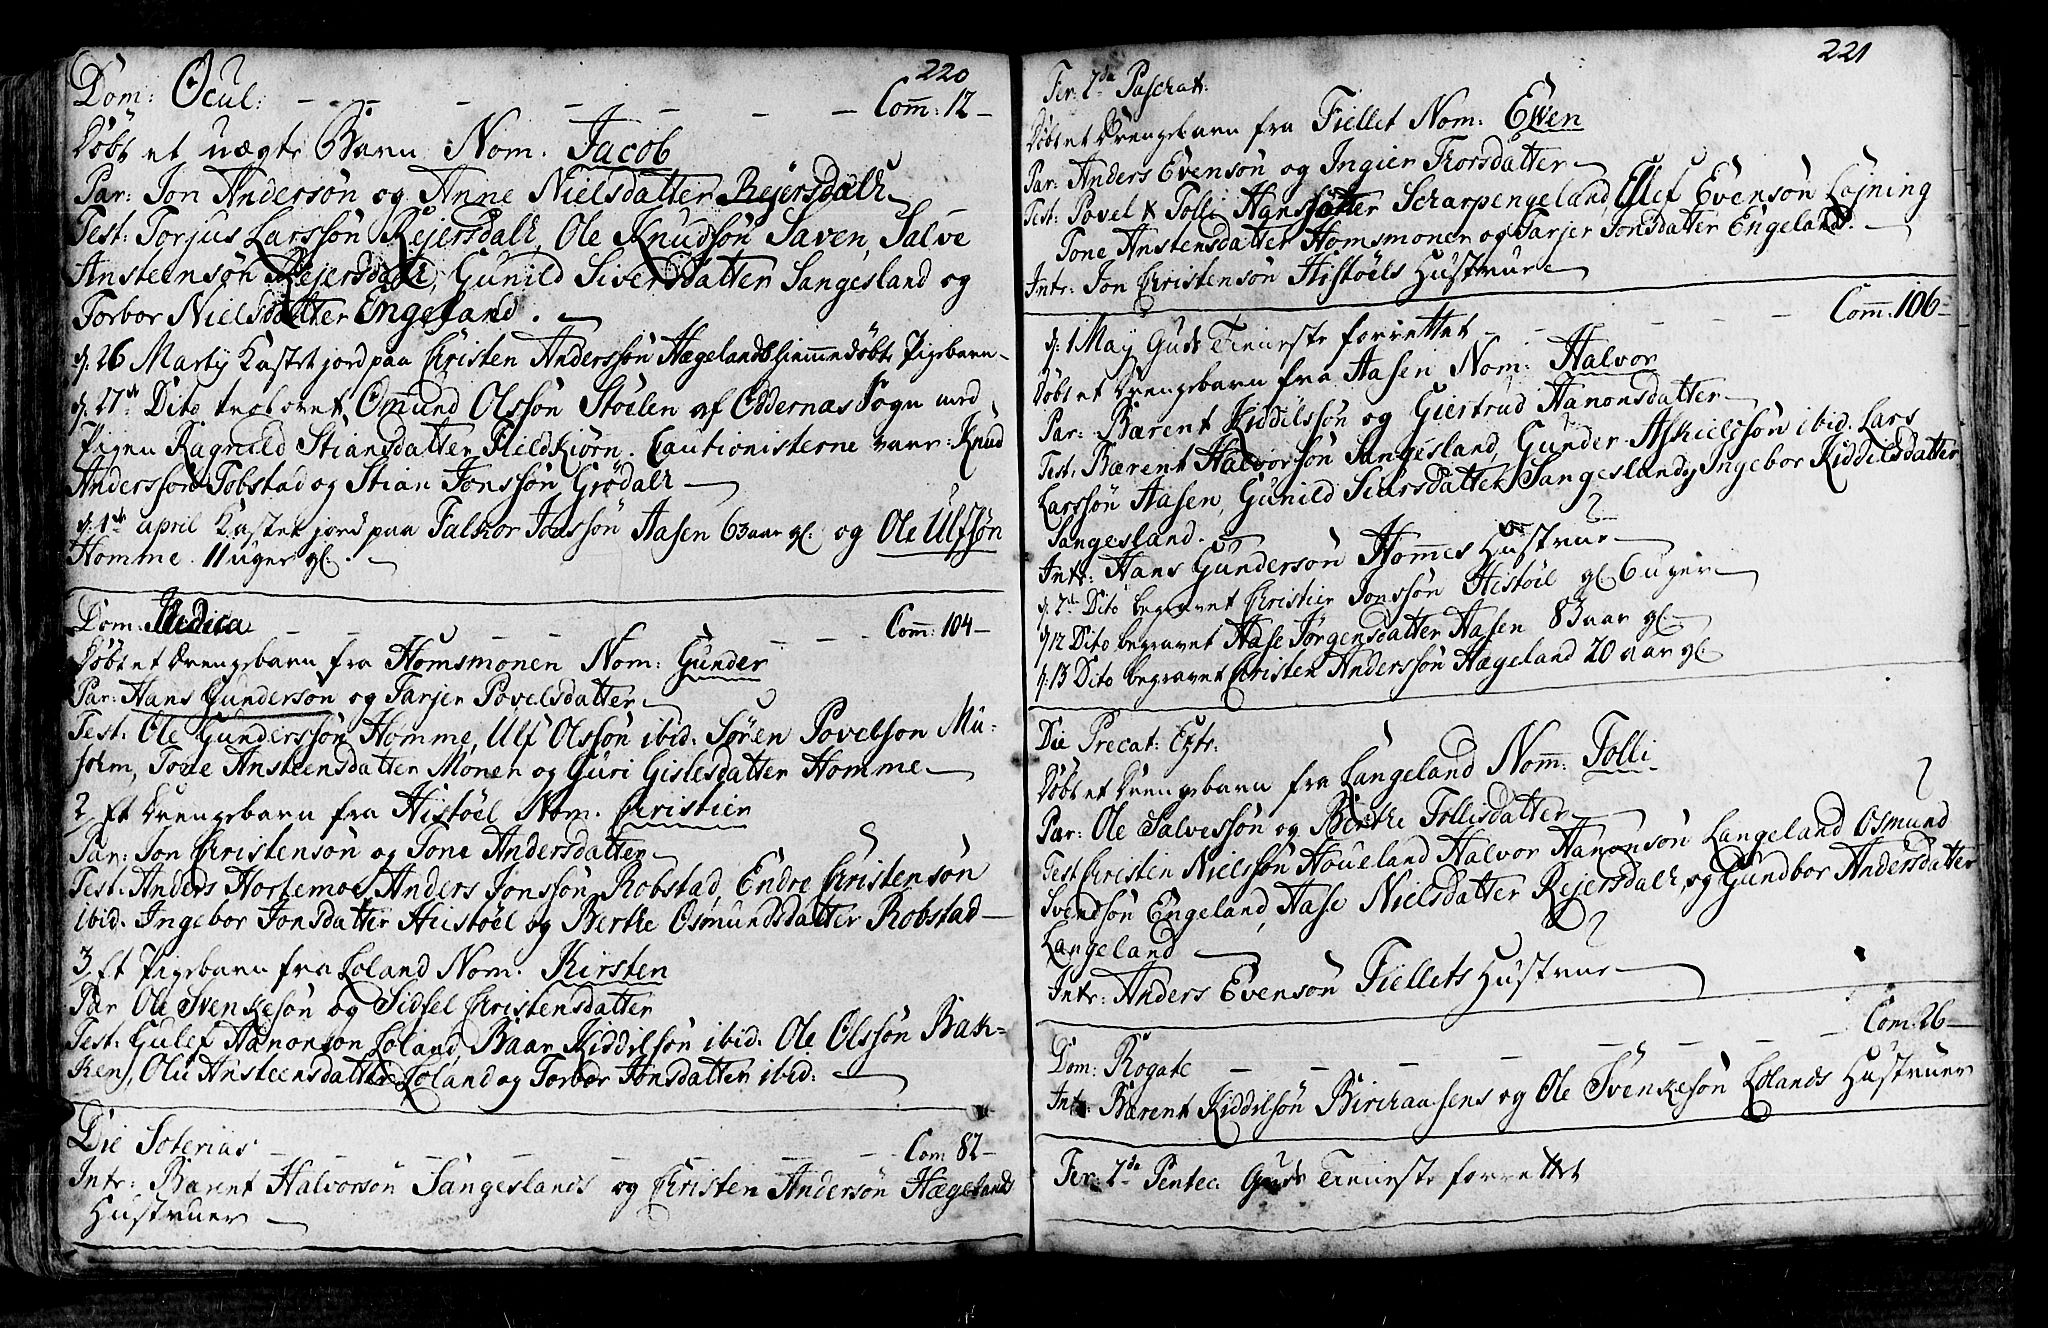 220
Dom: Ocul: - - - - - - Com̄: 12 -
Døbt et uægte Barn Nom. Jacob
Par: Jon Andersøn og Anne Nielsdatter Rejersdalk
Test: Torjus Larssøn Rejersdalk, Ole Knudsøn Saven, Salve
Ansteensøn Rejersdalk, Gunild Siversdatter Sangesland og
Torbor Nielsdatter Engeland.
d. 26 Martij Kastet jord paa Christen Anderssøn Hægelands hiemmedøbte Pigebarn
d. 27de Dito trolovet Omund Olssøn Støelen af Oddernæs Sogn med
Pigen Ragnild Stiansdatter Fieldkiørn. Cautionisterne vare: Knud
Anderssøn Tobstad og Stian Jonssøn Grødalk
d. 1ste april Kastet jord paa Falkor Jonssøn Aasen 63 aar gl: og Ole Ulfsøn
Homme. 11 uger gl.
Dom: Judica - - - - - - Com̄: 104 -
Døbt et Drengebarn fra Homsmonen Nom: Gunder
Par: Hans Gundersøn og Tarjer Povelsdatter
Test: Ole Gunderssøn Homme, Ulf Olssøn ibid. Søren Povelsøn Mu-
solm, Tone Ansteensdatter Monen og Guri Gislesdatter Homme
2, Et Drengebarn fra Histøel Nom. Christien
Par: Jon Christensøn og Tone Andersdatter
Test: Anders Hortemoe, Anders Jonssøn Robstad, Endre Christensøn
ibid. Ingebor Jonsdatter Histøel og Berthe Osmundsdatter Robstad
3, Et Pigebarn fra Loland Nom. Kirsten
Par Ole Svenkesøn og Sidsel Christensdatter
Test: Gulef Aanonsøn Loland, Baar Kiddilsøn ibid. Ole Olssøn Bak-
ken, Olu Ansteensdatter Loland og Torbor Jonsdatter ibid:
Die Soterias - - - - - Com 82 -
Intr: Bærent Halvorsøn Sangeslands og Christen Andersøn Hægelands
Hustruer
221
Fer: 2da Paschat:
Døbt et Drengebarn fra Fiellet Nom: Ewen
Par: Anders Evensøn og Ingier Torsdatter
Test: Povel & Tolli Hanssøtter Scharpengeland, Ellef Evensøn Løjning
Tone Anstensdatter Homsmonen og Tarjer Jonsdatter Engeland.
Intr: Jon Christensøn Histøels Hustrue
Com̄: 106 -
d: 1 May Guds Tieneste forrettet - - - -
Døbt et Drengebarn fra Aasen Nom: Halvor
Par: Bærent Kiddilssøn og Giertrud Aanonsdatter
Test: Bærent Halvorsøn Sangesland, Gunder Askielssøn ibid. Lars
Larssøn Aasen, Gunild Siursdatter Sangesland, Ingebor Kiddilsdatter
Sangesland.
Intr: Hans Gundersøn Hommes Hustrue
d. 7de Dito begravet Christier Jonssøn Histøel gl: 6 uger
d 12 Dito begravet Aase Jørgensdatter Aasen 83 aar gl.
d. 13 Dito begravet Christen Anderssøn Hægeland 20 aar gl
Die Precat: Extr:
Døbt et Drengebarn fra Langeland Nom̄: Tolli
Par: Ole Salvessøn og Berthe Tollisdatter
Test Christen Nielssøn Houeland Halvor Aanonsøn Langeland Osmund
Svendsøn Engeland, Aase Nielsdatter Rejersdalk, og Gundbor Andersdatter
Langeland
Intr: Anders Evensøn Fiellets Hustrue
Com: 26 -
Dom: Rogate - - - - - -
Intr: Bærent Kiddilsøn Birchaasens og Ole Svenkesøn Lolands Hustruer
Fer: 2da Pentec: Guds Tieneste forrettet